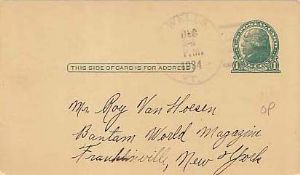 WELLS
DEC
P.M.
1934
THIS SIDE OF CARD IS FOR ADDRESS
Mr Roy Van Hoesen
Bantam World Magazine
Franklinville, New York